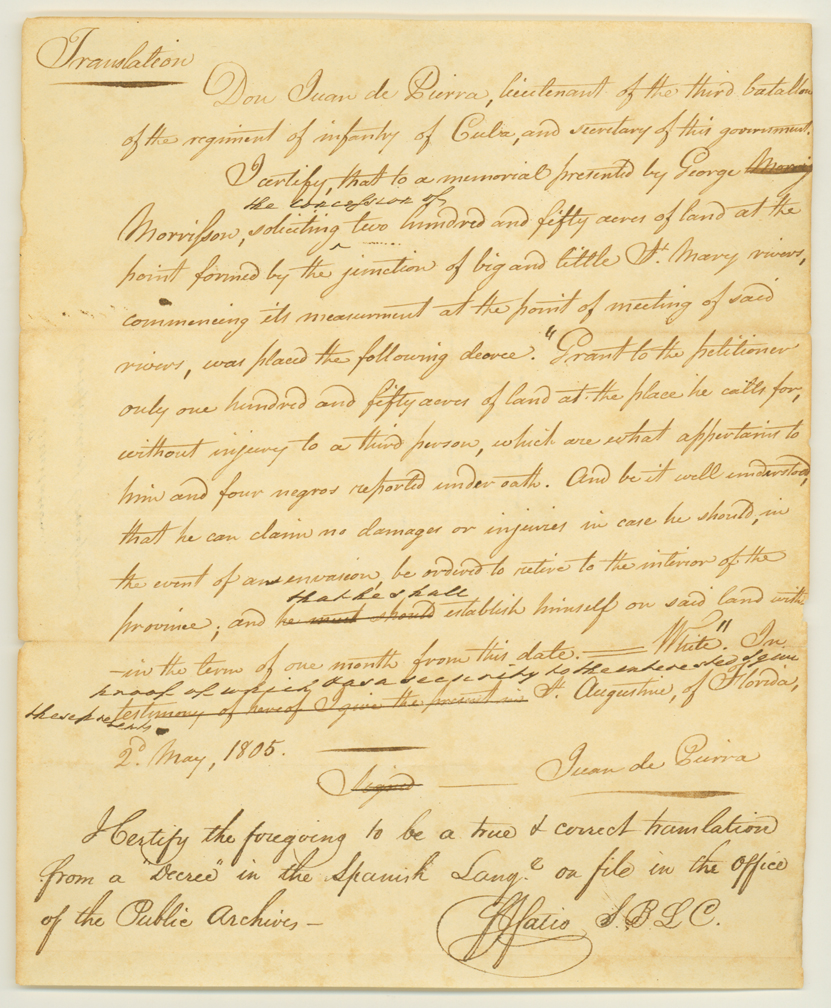 Translation
Don Juan de Pierra, lieutenant of the third batallon
of the regiment of infantry of Cuba, and secretary of this government.
I certify, that to a memorial presented by George Morris
the concession of
Morrisson, soliciting two hundred and fifty acres of land at the
point formed by the junction of big and little St. Mary rivers,
commencing its measurment at the point of meeting of said
rivers, was placed the following decree. "Grant to the petitioner
only one hundred and fifty acres of land at the place he calls for,
without injury to a third person, which are what appertains to
him and four negros reported under oath. And be it well understood,
that he can claim no damages or injuries in case he should, in
the event of an envasion, be ordered to retire to the interior of the
that he shall
province; and he must should establish himself on said land with
-in the term of one month from this date. — White". In
proof of which & as a security to the interested I give
these presents
testimony of hereof I give the present in St. Augustine, of Florida,
2d. May, 1805.
Signed — Juan de Pierra
I Certify the foregoing to be a true & correct translation
from a "Decree" in the Spanish Lang.e on file in the Office
of the Public Archives —
Fatio S.B.L.C.